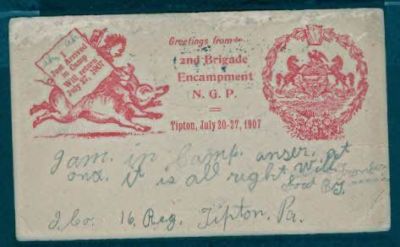 Just Arrived
in Camp
Will return
July 27, 1907
Greetings from
2nd Brigade
Encampment
N. G. P.
Tipton, July 20-27, 1907
I am in Camp. anser at
onc. it is all right Will
good By
I. Co. 16. Reg. Tipton. Pa.